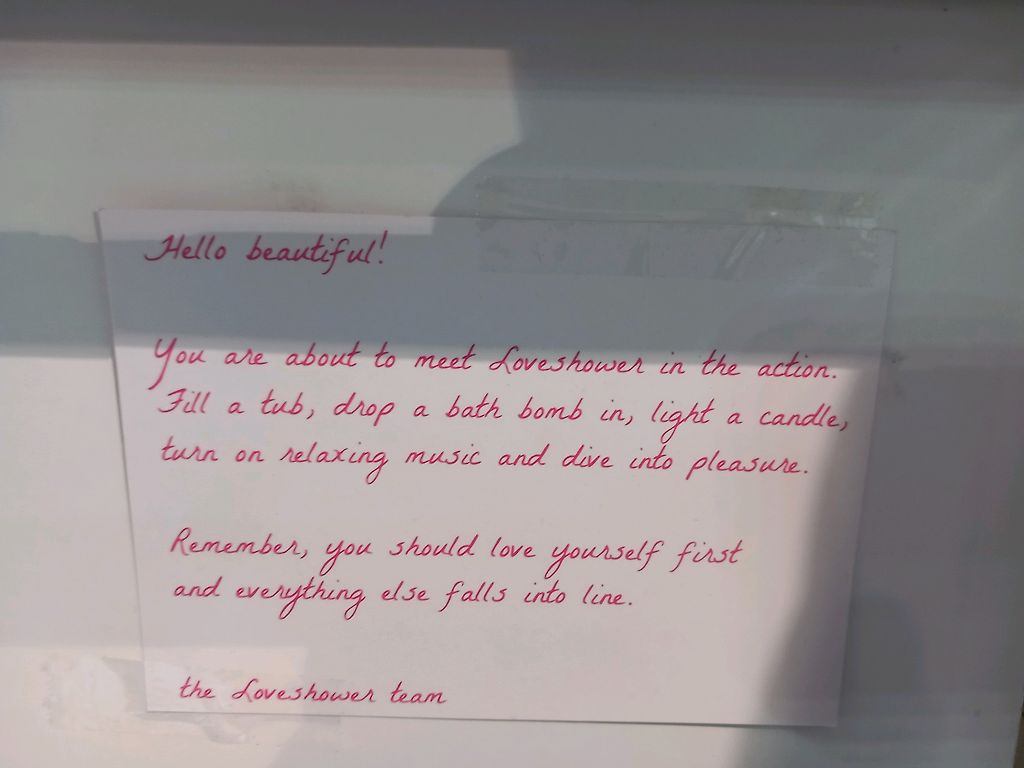 Hello beautiful!
You are about to meet Loveshower in the action.
Fill a tub, drop a bath bomb in, light a candle,
turn on relaxing music and dive into pleasure.
Remember, you should love yourself first
and everything else falls into line.
the Loveshower team